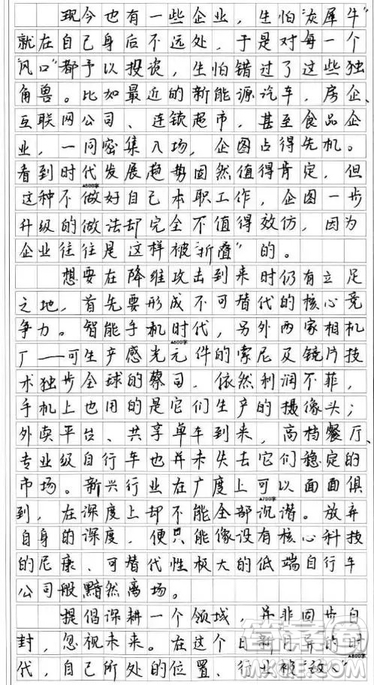 现今也有一些企业，生怕“灰犀牛”
就在自己身后不远处，于是对每一个
“风口”都予以投资，生怕错过了这些独
角兽。比如最近的新能源汽车，房企、
互联网公司、连锁超市，甚至食品企
业，一同密集入场，企图占得先机。
看到时代发展趋势固然值得肯定，但
这种不做好自己本职工作，企图一步
升级的做法却完全不值得效仿，因为
企业往往是这样被“折叠”的。
想要在降维攻击到来时仍有立足
之地，首先要形成不可替代的核心竞
争力。智能手机时代，另外两家相机
厂——可生产感光元件的索尼及镜片技
术独步全球的蔡司，依然利润不菲，
手机上也用的是它们生产的摄像头；
外卖平台、共享单车到来，高档餐厅、
专业级自行车也并未失去它们稳定的
市场。新兴行业在广度上可以面面俱
到，在深度上却不能全部沉潜。放弃
自身的深度，便只能像没有核心科技
的尼康、可替代性极大的低端自行车
公司般黯然离场。
提倡深耕一个领域，并非固步自
封，忽视未来。在这个日新月异的时
代，自己所处的位置、行业被“致